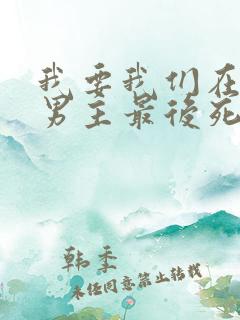 我要我们在
男主最後死
韩季
未经同意禁止转载